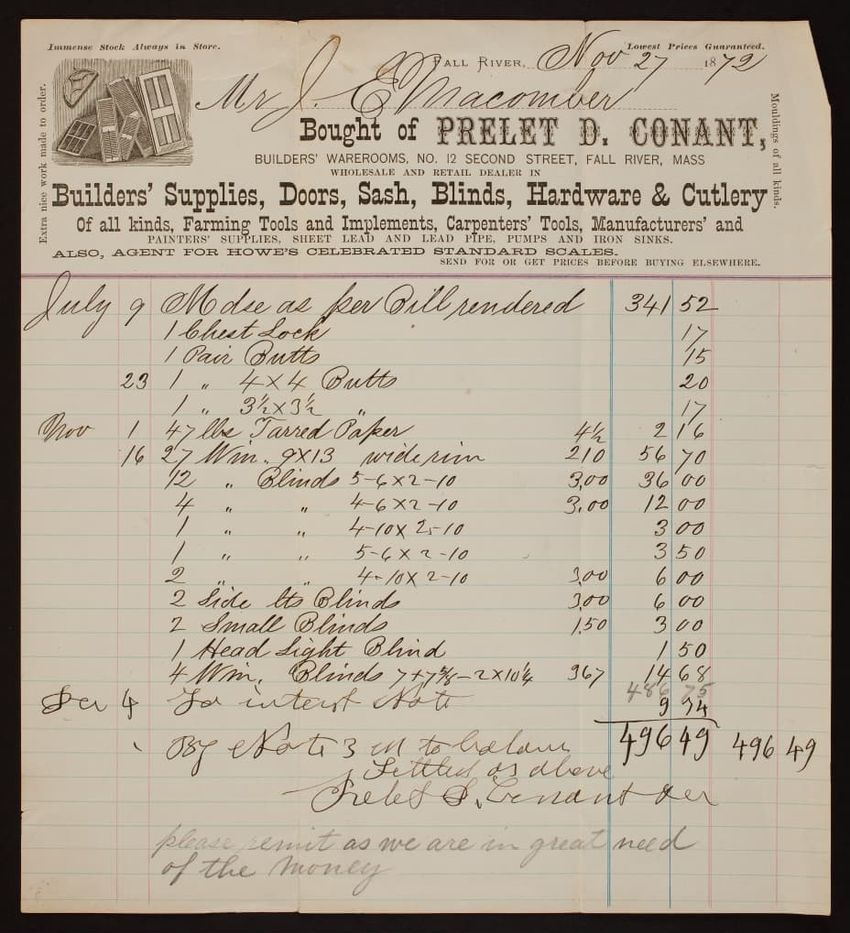 Immense Stock Always in Store.
Lowest Prices Guaranteed.
Extra nice work made to order.
Mouldings of all kinds.
FALL RIVER, Nov 27 1872
Mr J. E Macomber
Bought of PRELET D. CONANT,
BUILDERS' WAREROOMS, NO. 12 SECOND STREET, FALL RIVER, MASS
WHOLESALE AND RETAIL DEALER IN
Builders' Supplies, Doors, Sash, Blinds, Hardware & Cutlery
Of all kinds, Farming Tools and Implements, Carpenters' Tools, Manufacturers' and
PAINTERS' SUPPLIES, SHEET LEAD AND LEAD PIPE, PUMPS AND IRON SINKS.
ALSO, AGENT FOR HOWE'S CELEBRATED STANDARD SCALES.
SEND FOR OR GET PRICES BEFORE BUYING ELSEWHERE.
July 9 Mdse as per Bill rendered 341 52
1 Chest Lock 17
1 Pair Butts 15
23 1 " 4 x 4 Butts 20
1 " 3½ x 3½ " 17
Nov 1 47 lbs Tarred Paper 4½ 2 16
16 27 Win. 9x13 wide rim 210 56 70
12 " Blinds 5-6 x 2-10 3,00 36 00
4 " " 4-6 x 2-10 3,00 12 00
1 " " 4-10 x 2-10 3 00
1 " " 5-6 x 2-10 3 50
2 " " 4-10 x 2-10 3,00 6 00
2 Side lts Blinds 3,00 6 00
2 Small Blinds 1,50 3 00
1 Head Light Blind 1 50
4 Win. Blinds 7+7⅝-2x10¼ 367 14 68
486 75
4 To interest Note 9 74
By Note 3 m to balance 496 49 496 49
Settled as above
Prelet D. Conant
please remit as we are in great need
of the money